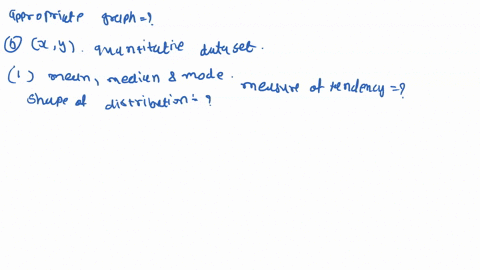 appropriate graph=?
(b) (x,y). quantitative dataset.
(1) mean, median & mode. measure of tendency=?
Shape of distribution=?